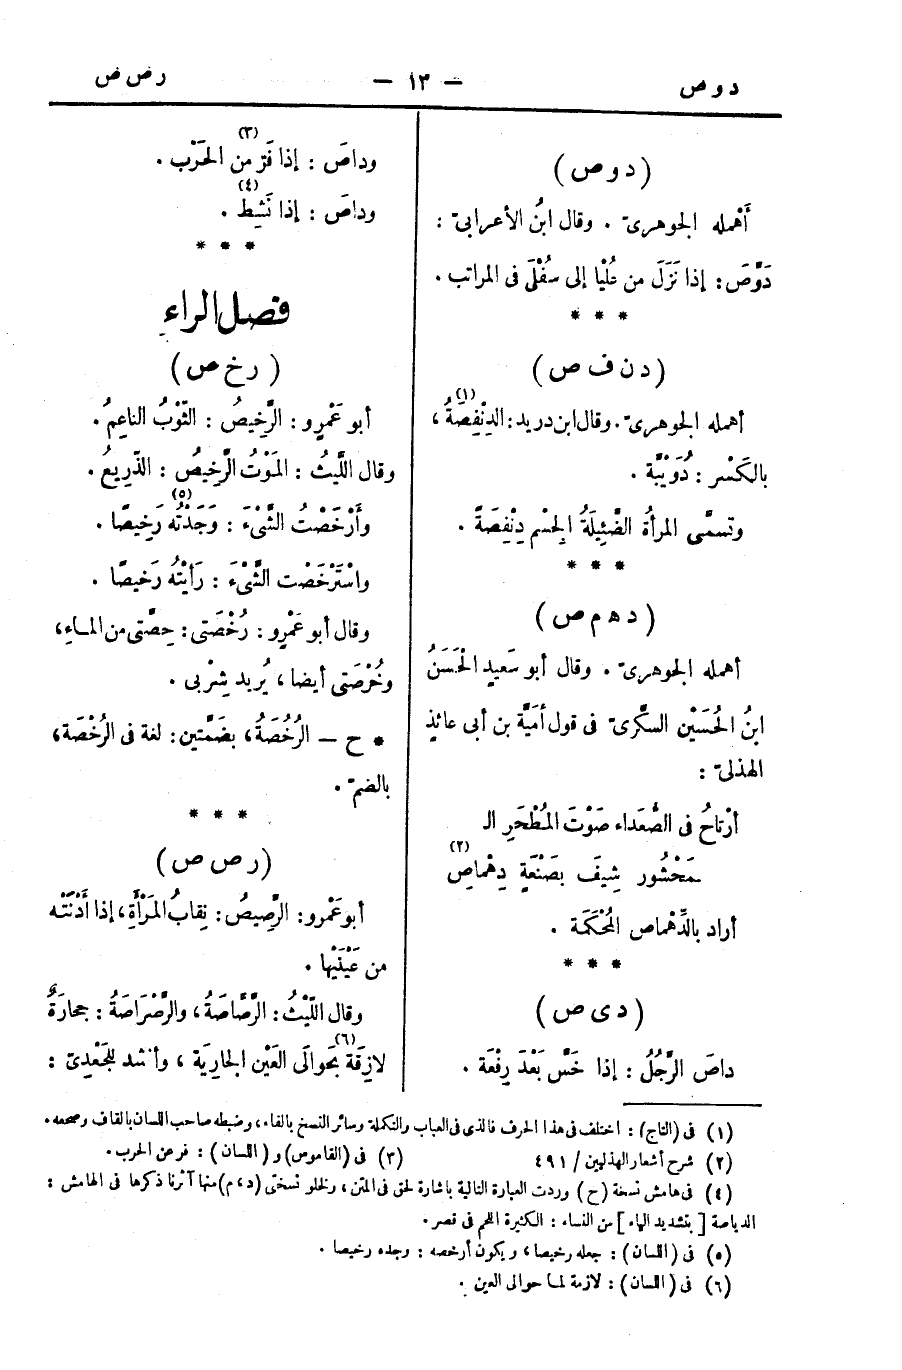 دوص — ١٣ — رصص
(دوص)
أَهْمله الجوهرىّ . وقال ابنُ الأعرابىّ :
دَوَّصَ: إذا نَزَلَ من عُلْيا إلى سُفْلَى فى المراتب .
* * *
(دنفص)
أهمله الجوهرىّ. وقال ابن دريد: الدِنْفِصَةُ(١)،
بالكَسْر : دُوَيْبَّة .
وتسمَّى المرأةُ الضَّئِيلَةُ الجِسْم دِنْفِصَةً .
* * *
(دهمص)
أهمله الجوهرىّ . وقال أبو سَعِيدٍ الحَسَنُ
ابنُ الحُسَيْن السكّرىّ فى قول أُمَيَّة بن أبى عائذٍ
الهذلىّ :
أرْتاحُ فى الصُّعَداء صَوْتَ المُطْحَرِ الـ
ـمَحْشُور شِيفَ بصَنْعَةٍ دِهْماصِ(٢)
أراد بالدِّهْماص المُحْكَمَة .
* * *
(دىص)
داصَ الرَّجُلُ : إذا خَسَّ بَعْدَ رِفْعَة .
وداصَ : إذا فَرَّ من الحَرْب(٣) .
وداصَ : إذا نَشِطَ(٤) .
* * *
فصل الراء
(رخص)
أبو عَمْرٍو : الرَّخِيصُ : الثَّوْبُ الناعِمُ .
وقال اللَّيثُ : المَوْتُ الرَّخِيصُ : الذَّرِيعُ .
وأَرْخَصْتُ الشَّىْءَ : وَجَدْتُه(٥) رَخِيصًا .
واسْتَرْخَصْت الشَّىْءَ : رَأَيْتُه رَخيصًا .
وقال أبو عَمْرٍو : رُخْصَتى : حِصَّتى من المـاءِ،
وخُرْصَتى أيضا، يُريد شِرْبى .
* ح — الرُخُصَةُ، بضَمَّتين: لغة فى الرُخْصَة،
بالضمّ .
* * *
(رصص)
أبو عَمْرو: الرَّصِيصُ: نِقابُ المَرْأَةِ، إذا أَدْنَتْه
من عَيْنَيْها .
وقال اللَّيْثُ: الرَّصَّاصَةُ، والرَّصْرَاصَةُ : حِجارَةٌ
لازِقَة بحَوالَى(٦) العَيْن الجارِيَة ، وأنشد للجَعْدِىّ :
(١) فى (التاج) : اختلف فى هذا الحرف فالذى فى العباب والتكملة وسائر النسخ بالفاء، وضبطه صاحب اللسان بالقاف وصححه.
(٢) شرح أشعار الهذليين / ٤٩١ (٣) فى (القاموس) و (اللسان) : فر عن الحرب .
(٤) فى هامش نسخة (ح) وردت العبارة التالية بإشارة لحق فى المتن ، ولخلو نسختى (د،م) منها آثرنا ذكرها فى الهامش :
الدياصة [ بتشديد الياء ] من النساء : الكثيرة اللحم فى قصر .
(٥) فى (اللسان) : جعله رخيصا ، ويكون أرخصه : وجده رخيصا .
(٦) فى (اللسان) : لازمة لمـا حوالى العين .